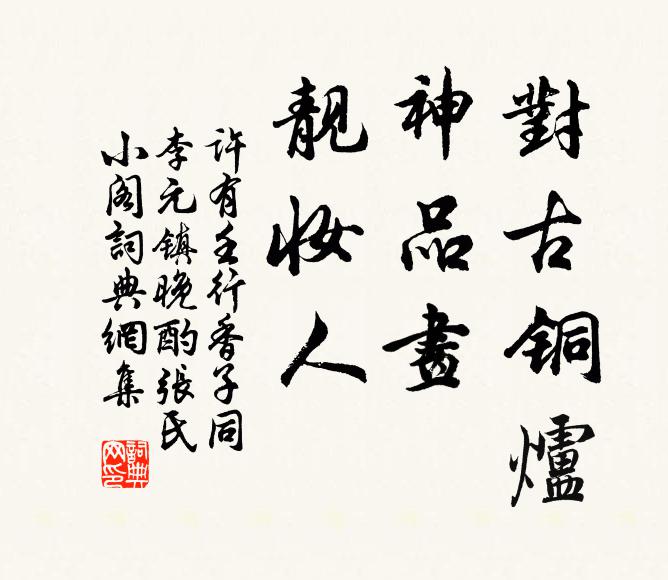 對古銅爐
神品畫
靚妝人
許有壬行香子同
李元鎮晚酌張氏
小閣詞典網集
詞典
网印